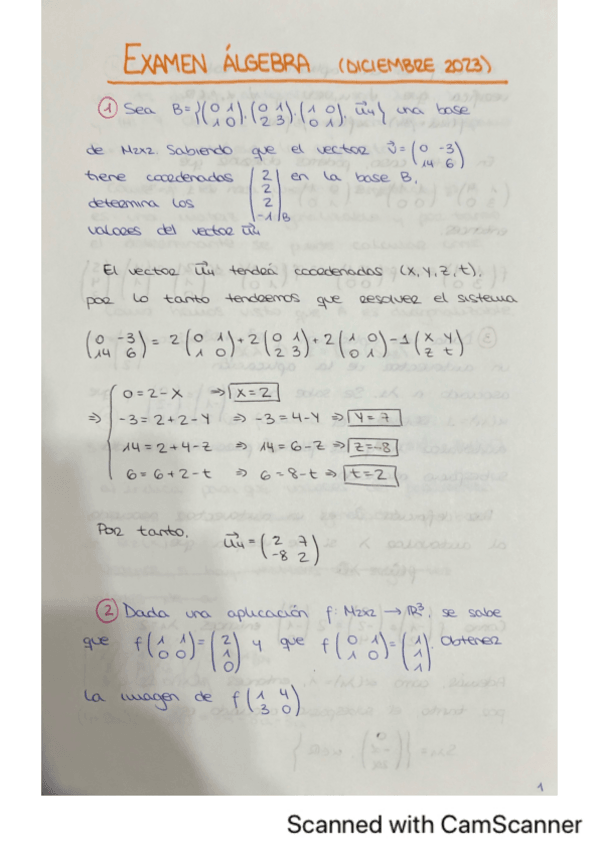 EXAMEN ÁLGEBRA (DICIEMBRE 2023)
① Sea B={(0 1 / 1 0), (0 1 / 2 3), (1 0 / 0 1), u⃗4} una base
de M2x2. Sabiendo que el vector v⃗=(0 -3 / 14 6)
tiene coordenadas (2 / 2 / 2 / -1)B en la base B,
determina los
valores del vector u⃗4
El vector u⃗4 tendrá coordenadas (x,y,z,t),
por lo tanto tendremos que resolver el sistema
(0 -3 / 14 6) = 2(0 1 / 1 0) + 2(0 1 / 2 3) + 2(1 0 / 0 1) - 1(x y / z t)
0=2-x ⇒ x=2
⇒ -3=2+2-y ⇒ -3=4-y ⇒ y=7
14=2+4-z ⇒ 14=6-z ⇒ z=-8
6=6+2-t ⇒ 6=8-t ⇒ t=2
Por tanto, u⃗4=(2 7 / -8 2)
② Dada una aplicación f: M2x2 → ℝ³, se sabe
que f(1 1 / 0 0)=(2 / 1 / 0) y que f(0 1 / 1 0)=(1 / 1 / 1). Obtener
la imagen de f(1 4 / 3 0)
1
Scanned with CamScanner